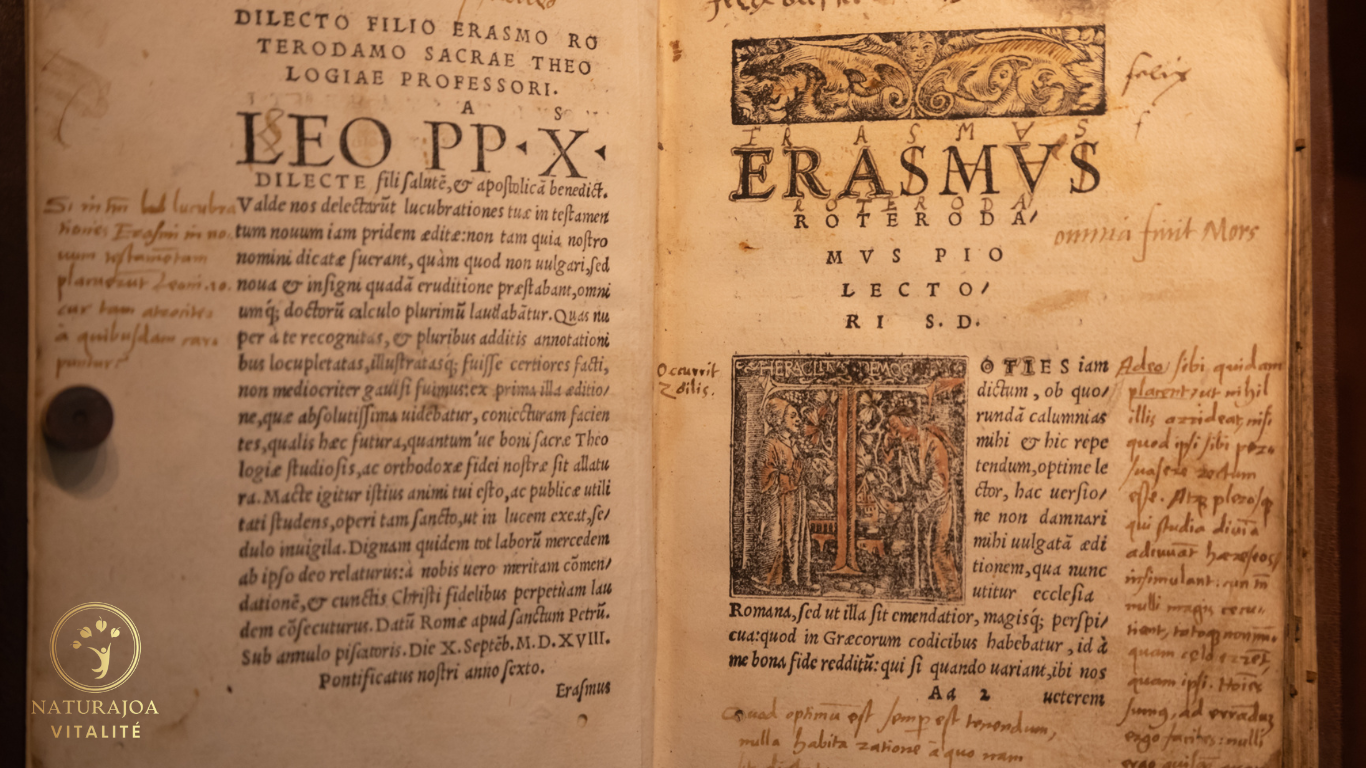 DILECTO FILIO ERASMO RO
TERODAMO SACRAE THEO
LOGIAE PROFESSORI.
A S
LEO PP. X.
DILECTE fili salutē, & apostolicā benedict.
Valde nos delectarūt lucubrationes tuæ in testamen
tum nouum iam pridem æditæ: non tam quia nostro
nomini dicatæ fuerant, quàm quod non uulgari, sed
noua & insigni quadā eruditione præstabant, omni
umq́; doctorū calculo plurimū laudabātur. Quas nu
per à te recognitas, & pluribus additis annotationi
bus locupletatas, illustratasq́; fuisse certiores facti,
non mediocriter gauisi fuimus: ex prima illa æditio/
ne, quæ absolutissima uidebatur, coniecturam facien
tes, qualis hæc futura, quantum'ue boni sacræ Theo
logiæ studiosis, ac orthodoxæ fidei nostræ sit allatu
ra. Macte igitur istius animi tui esto, ac publicæ utili
tati studens, operi tam sancto, ut in lucem exeat, se/
dulo inuigila. Dignam quidem tot laborū mercedem
ab ipso deo relaturus: à nobis uero meritam cōmen/
dationē, & cunctis Christi fidelibus perpetuam lau
dem cōsecuturus. Datū Romæ apud sanctum Petrū.
Sub annulo piscatoris. Die X. Septēb. M.D.XVIII.
Pontificatus nostri anno sexto.
Erasmus
Erasmi in no.
à quibusdam
NATURAJOA
VITALITÉ
felix
f
ERASMVS
ERASMVS
RODERODA
ROTERODA/
omnia finit Mors
MVS PIO
LECTO/
RI S.D.
Occurrit
Zoilis.
HERACLITVS DEMOC
T
OTIES iam
dictum, ob quo/
rundā calumnias
mihi & hic repe
tendum, optime le
ctor, hac uersio/
ne non damnari
mihi uulgatā ædi
tionem, qua nunc
utitur ecclesia
Romana, sed ut illa sit emendatior, magisq́; perspi/
cua: quod in Græcorum codicibus habebatur, id à
me bona fide redditū: qui si quando uariant, ibi nos
Aa 2 ueterem
Adeo sibi quidam
placent, ut nihil
illis arrideat, nisi
quod ipsi sibi
esse.
qui studia
quam ipsi.
Quod optimū est semp est tenendum,
nulla habita ratione à quo nam